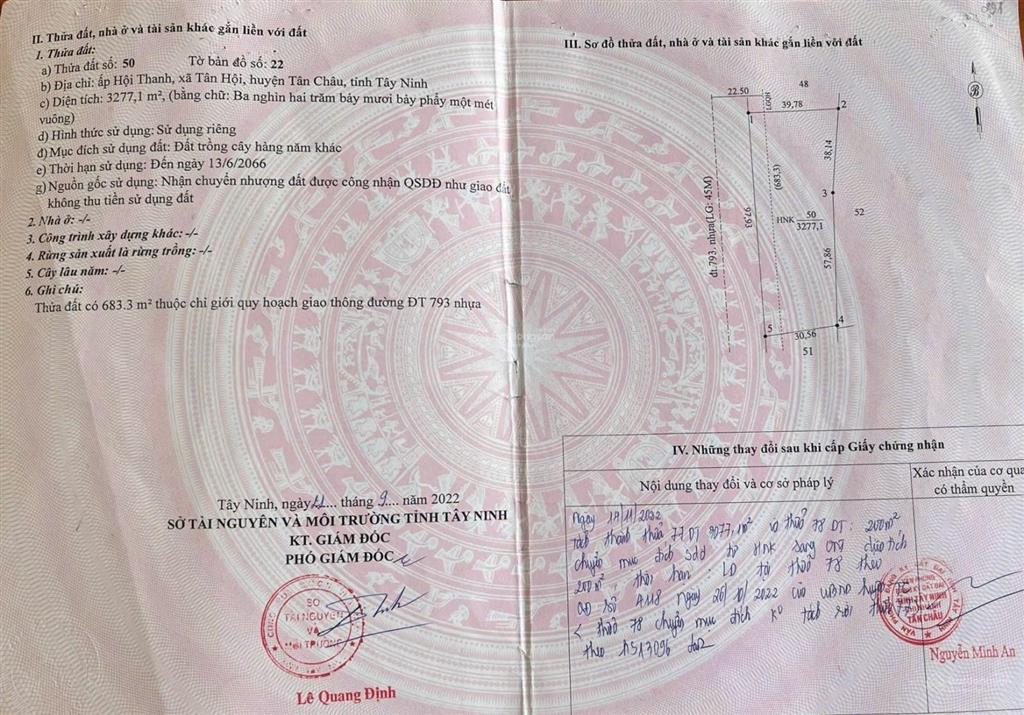 II. Thửa đất, nhà ở và tài sản khác gắn liền với đất
1. Thửa đất:
a) Thửa đất số: 50 Tờ bản đồ số: 22
b) Địa chỉ: ấp Hội Thanh, xã Tân Hội, huyện Tân Châu, tỉnh Tây Ninh
c) Diện tích: 3277,1 m², (bằng chữ: Ba nghìn hai trăm bảy mươi bảy phẩy một mét
vuông)
d) Hình thức sử dụng: Sử dụng riêng
đ) Mục đích sử dụng đất: Đất trồng cây hàng năm khác
e) Thời hạn sử dụng: Đến ngày 13/6/2066
g) Nguồn gốc sử dụng: Nhận chuyển nhượng đất được công nhận QSDĐ như giao đất
không thu tiền sử dụng đất
2. Nhà ở: -/-
3. Công trình xây dựng khác: -/-
4. Rừng sản xuất là rừng trồng: -/-
5. Cây lâu năm: -/-
6. Ghi chú:
Thửa đất có 683.3 m² thuộc chỉ giới quy hoạch giao thông đường ĐT 793 nhựa
Tây Ninh, ngày .... tháng 9 ... năm 2022
SỞ TÀI NGUYÊN VÀ MÔI TRƯỜNG TỈNH TÂY NINH
KT. GIÁM ĐỐC
PHÓ GIÁM ĐỐC
SỞ
TÀI NGUYÊN
VÀ
MÔI TRƯỜNG
Lê Quang Định
III. Sơ đồ thửa đất, nhà ở và tài sản khác gắn liền với đất
B
48
22.50
LGQH
39,78
2
38,14
(683.3)
3
đt.793. nhựa(LG: 45M)
97,93
HNK 50
3277,1
52
57,86
4
5
30,56
51
IV. Những thay đổi sau khi cấp Giấy chứng nhận
Nội dung thay đổi và cơ sở pháp lý
Xác nhận của cơ quan
có thẩm quyền
Ngày 17/11/2022
tách thành thửa 77 DT 3077,1m² và thửa 78 DT: 200m²
chuyển mục đích sdđ từ HNK sang ONT diện tích
200m², thời hạn: LD tại thửa 78 theo
QĐ số 4118 ngày 26/10/2022 của UBND huyện TC
< thửa 78 chuyển mục đích K° tách
theo
TÂN CHÂU
Nguyễn Minh An